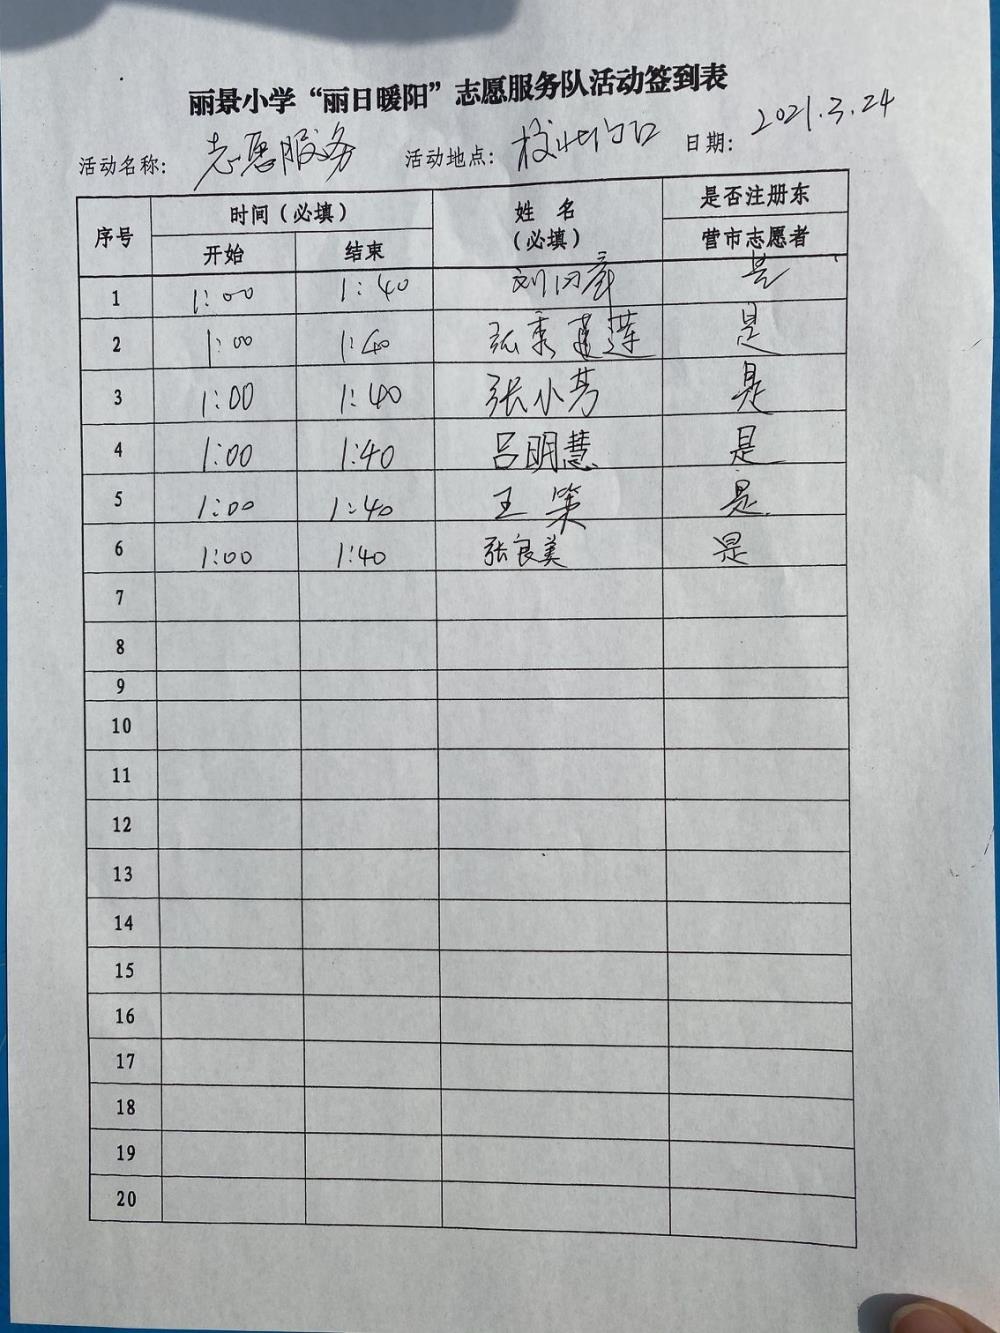 丽景小学“丽日暖阳”志愿服务队活动签到表
活动名称: 志愿服务 活动地点: 校北门口 日期: 2021.3.24
序号 时间(必填) 姓 名 (必填) 是否注册东营市志愿者
开始 结束
1 1:00 1:40 刘 是
2 1:00 1:40 张秀莲 是
3 1:00 1:40 张小芳 是
4 1:00 1:40 吕明慧 是
5 1:00 1:40 王 是
6 1:00 1:40 张良美 是
7
8
9
10
11
12
13
14
15
16
17
18
19
20